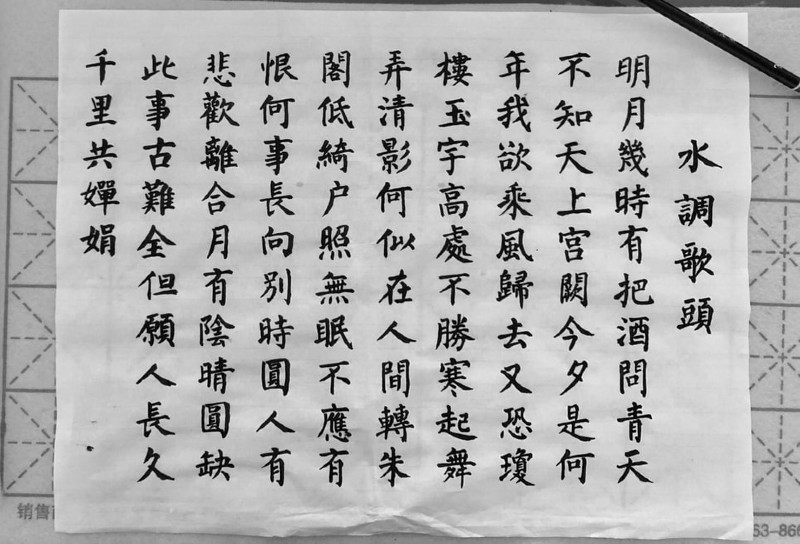 水調歌頭
明月幾時有把酒問青天
不知天上宮闕今夕是何
年我欲乘風歸去又恐瓊
樓玉宇高處不勝寒起舞
弄清影何似在人間轉朱
閣低綺户照無眠不應有
恨何事長向别時圓人有
悲歡離合月有陰晴圓缺
此事古難全但願人長久
千里共嬋娟
销售
63-866